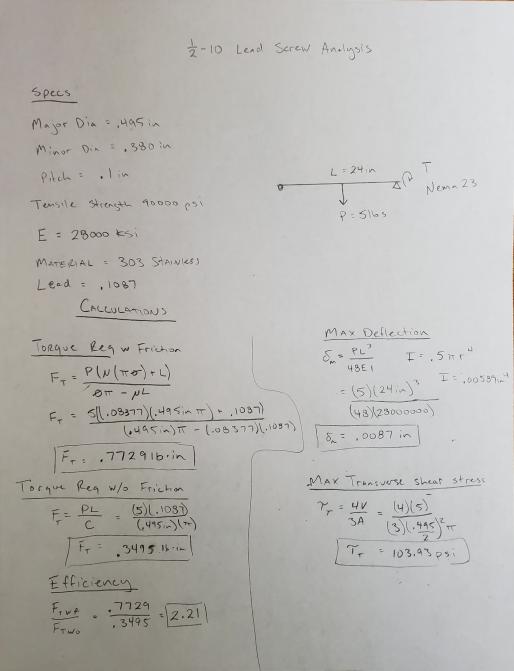 1/2-10 Lead Screw Analysis
Specs
Major Dia = .495in
Minor Dia = .380in
Pitch = .1in
Tensile Strength 90000 psi
E = 28000 ksi
MATERIAL = 303 STAINLESS
Lead = .1087
L = 24in
T
Nema 23
P = 5lbs
CALCULATIONS
Torque Req w Friction
F_T = P(N(πØ)+L) / Øπ - NL
F_T = 5((.08377)(.495in π) + .1087) / (.495in)π - (.08377)(.1087)
F_T = .7729 lb·in
Torque Req w/o Friction
F_T = PL / C = (5)(.1087) / (.495in)(π)
F_T = .3495 lb·in
Efficiency
F_TWF / F_TWO = .7729 / .3495 = 2.21
MAX Deflection
δm = PL³ / 48EI I = .5πr⁴
= (5)(24in)³ / (48)(28000000) I = .00589in⁴
δm = .0087 in
MAX Transverse shear stress
τ_T = 4V / 3A = (4)(5) / (3)(.495/2)²π
τ_T = 103.93 psi